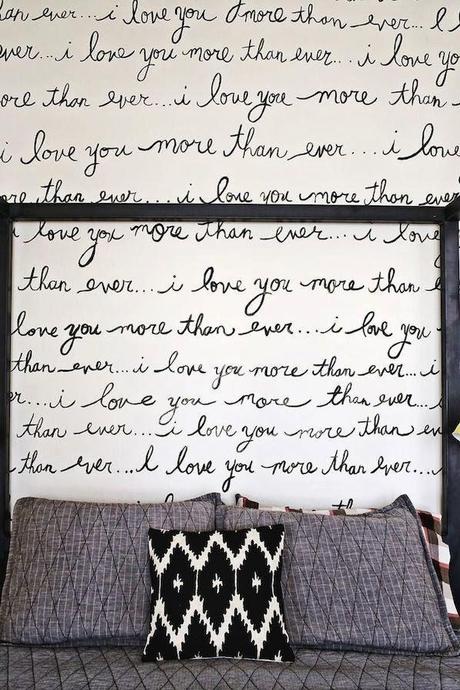 than ever... i love you more than ever... I l
ever... i love you more than ever... i love yo
ore than ever... i love you more than
i love you more than ever... i love
more than ever.... i love you more than ever
i love you more than ever... i love
than ever... i love you more than e
love you more than ever... i love you
than ever... i love you more than ever... i
r... i love you more than ever...
than ever... i love you more than ev
than ever... I love you more than ever... i